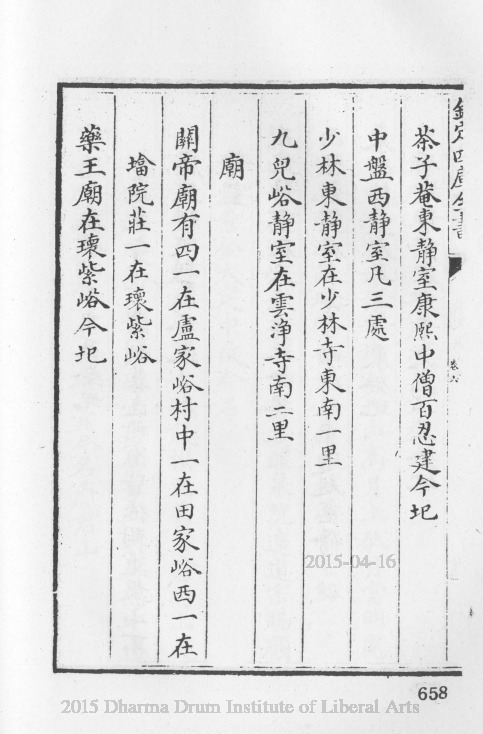 欽定四庫全書
卷六
茶子菴東静室康熙中僧百忍建今圮
中盤西静室凡三處
少林東静室在少林寺東南一里
九兒峪静室在雲浄寺南二里
廟
關帝廟有四一在盧家峪村中一在田家峪西一在
塔院莊一在瓌紫峪
藥王廟在瓌紫峪今圮
2015-04-16
658
2015 Dharma Drum Institute of Liberal Arts